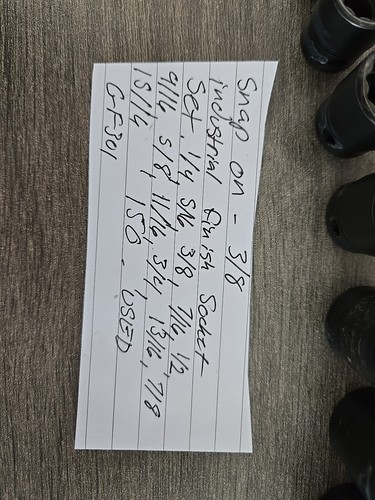 Snap on - 3/8
industrial finish Socket
Set. 1/4 SAE 3/8, 7/16, 1/2
9/16 5/8, 11/16, 3/4, 13/16, 7/8
15/16 , 150 - USED
G-F301